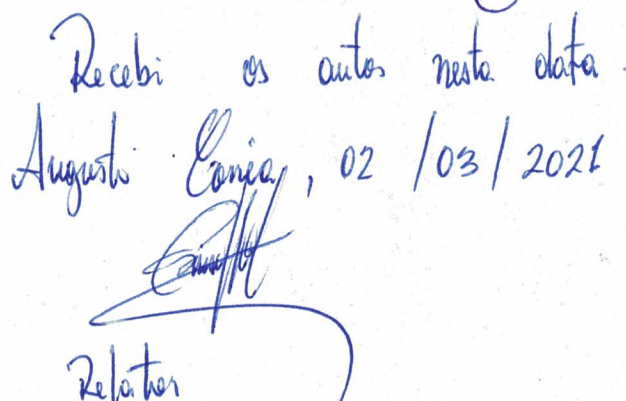 Recebi os autos nesta data
Augusto Corrêa, 02 /03/2021
Relator